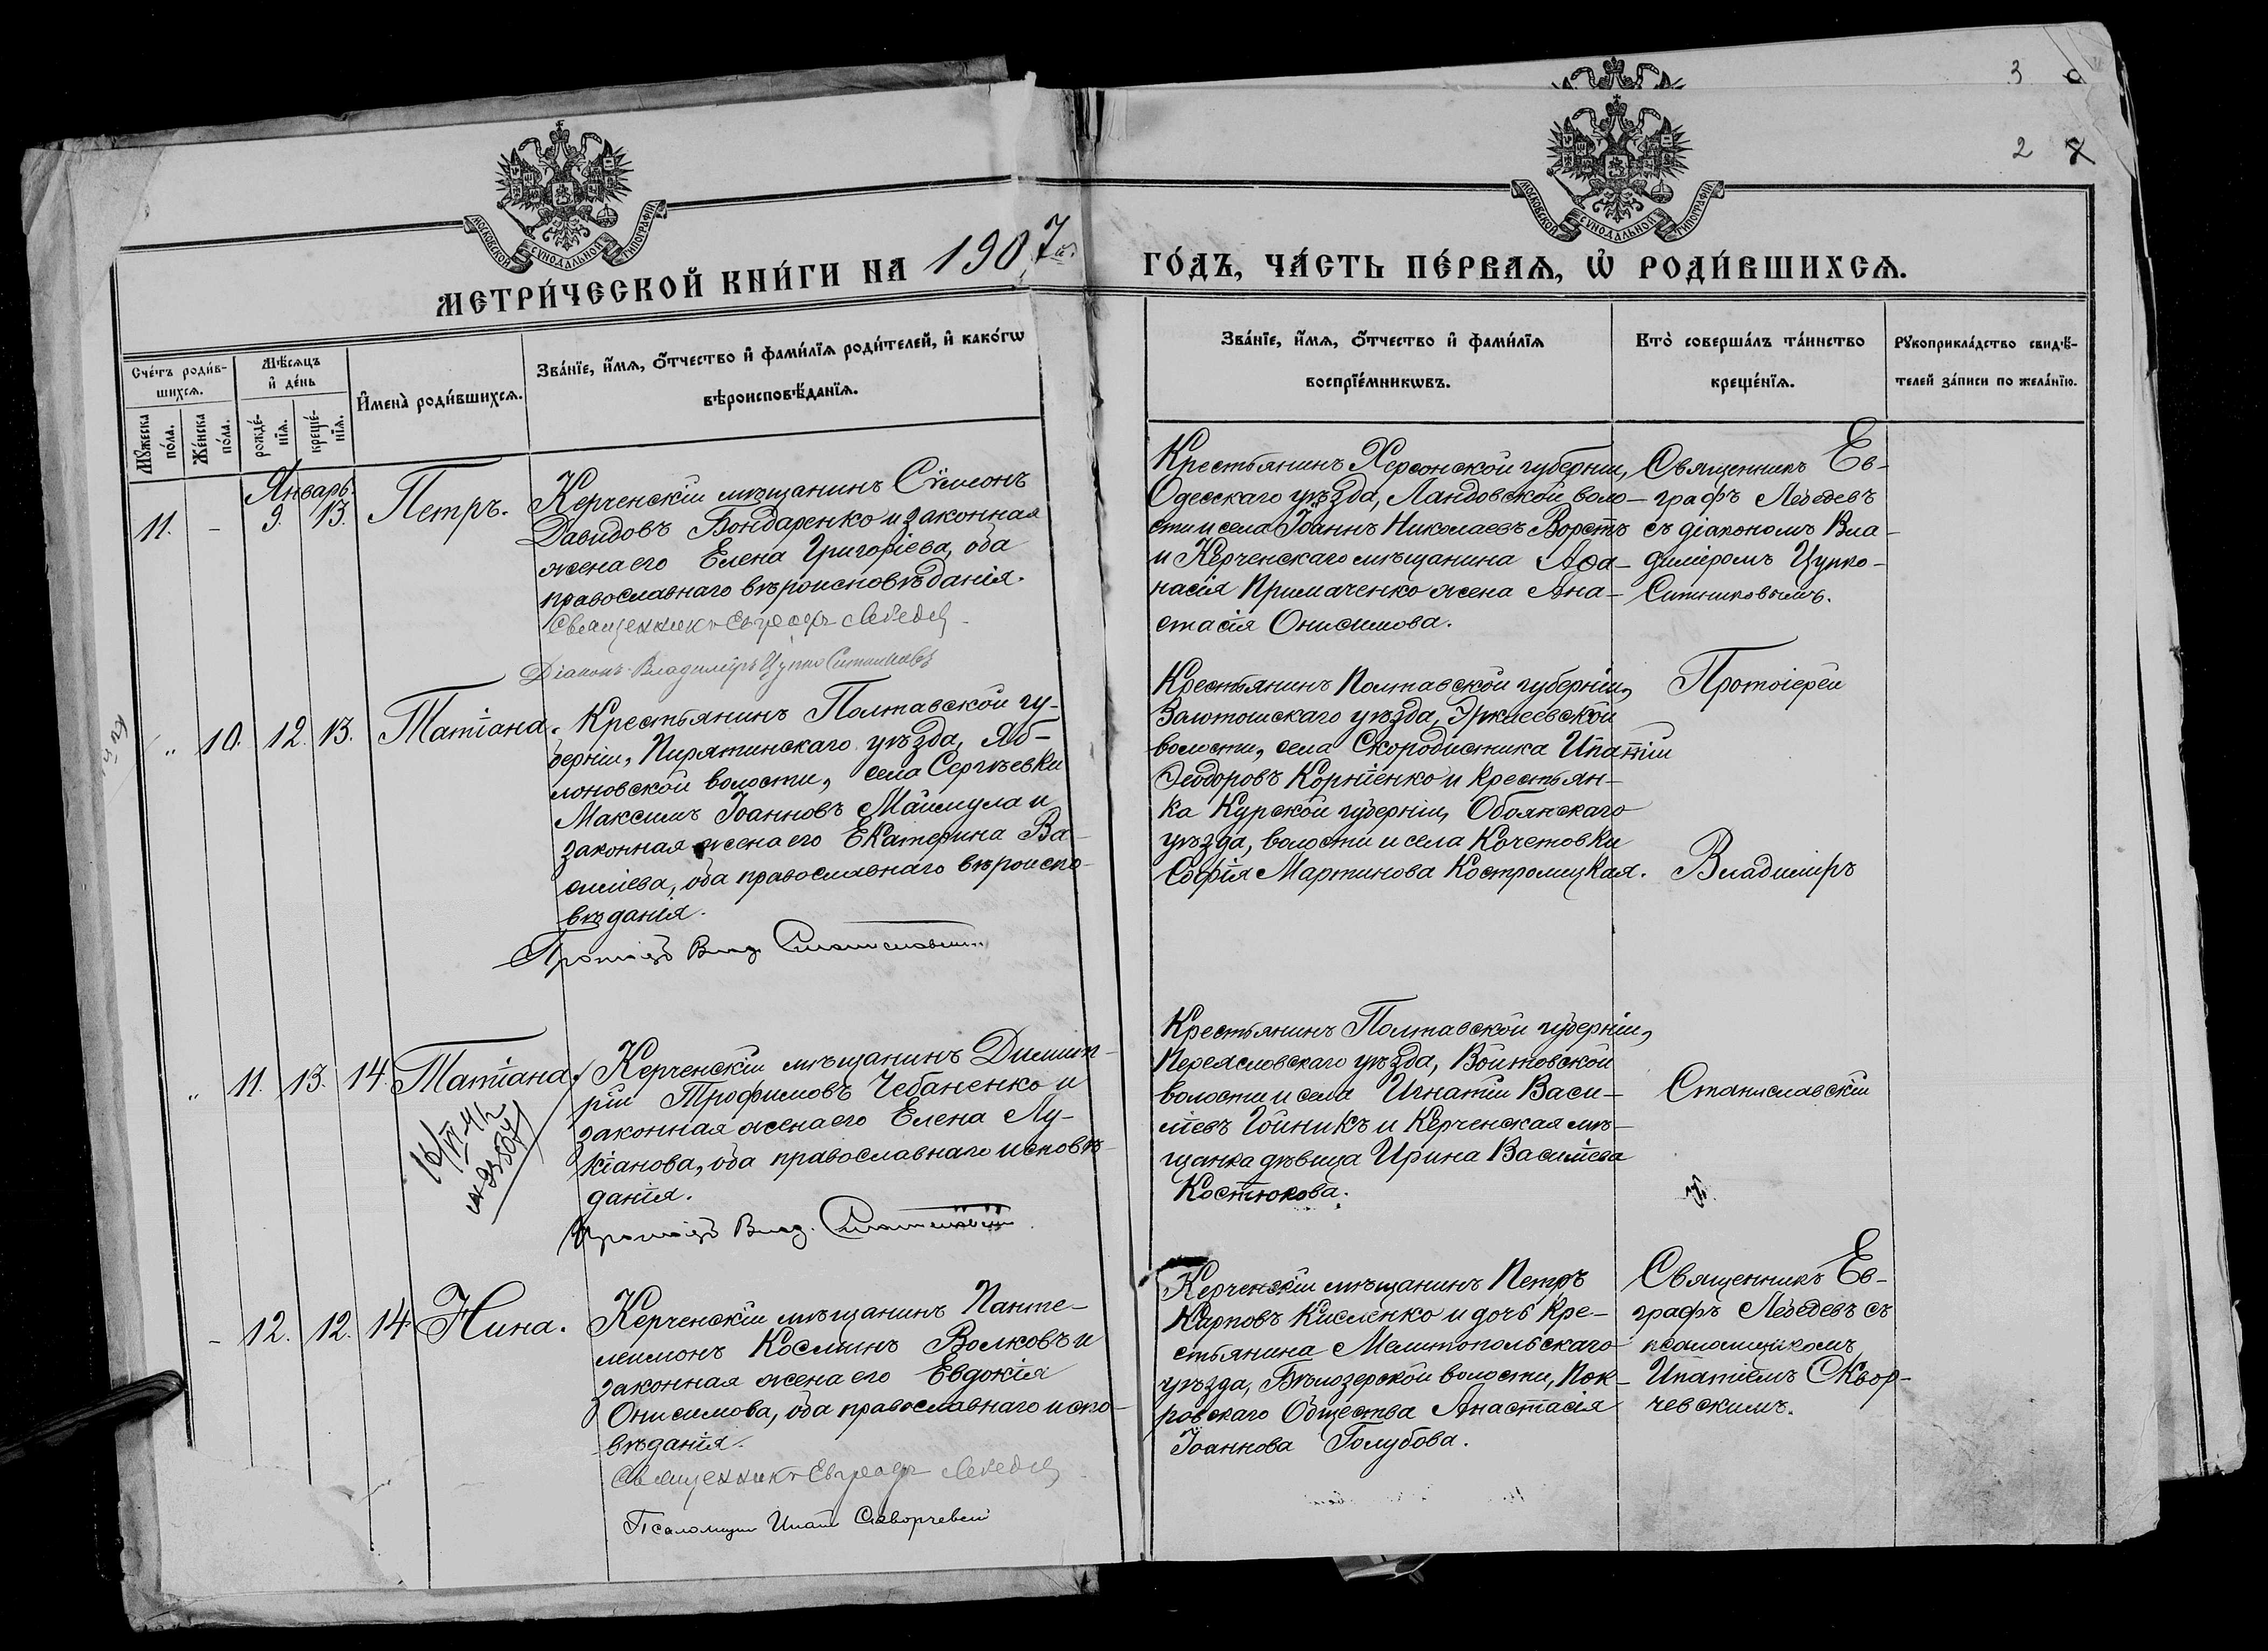 3
2
МОСКОВСКОЙ СѴНОДАЛЬНОЙ ТИПОГРАФІИ
МОСКОВСКОЙ СѴНОДАЛЬНОЙ ТИПОГРАФІИ
МЕТРИ́ЧЕСКОЙ КНИ́ГИ НА 1907
ГО́ДЪ, ЧА́СТЬ ПЕ́РВАѦ, Ѡ҆ РОДИ́ВШИХСѦ.
Сче́тъ роди́в-
шихсѧ.
Мꙋ́жеска
по́ла.
Же́нска
по́ла.
Мѣ́сѧцъ
и҆ де́нь
рожде́-
нїѧ.
креще́-
нїѧ.
И҆мена̀ роди́вшихсѧ.
Зва́нїе, и҆́мѧ, ѻ҆́тчество и҆ фами́лїѧ роди́телей, и҆ како́гѡ
вѣроисповѣ́данїѧ.
Зва́нїе, и҆́мѧ, ѻ҆́тчество и҆ фами́лїѧ
воспрїе́мникѡвъ.
Кто̀ соверша́лъ та́инство
креще́нїѧ.
Рꙋкоприкла́дство свидѣ́-
телей за́писи по жела́нїю.
Январь.
11. - 9. 13. Петръ.
Керченскій мѣщанинъ Сѵмеонъ
Давидовъ Бондаренко и законная
жена его Елена Григоріева, оба
православнаго вѣроисповѣданія.
Священникъ Евграфъ Лебедевъ
Діаконъ Владиміръ Цупко Ситниковъ
Крестьянинъ Херсонской губерніи,
Одесскаго уѣзда, Ландовской воло-
сти и села Іоаннъ Николаевъ Ворстъ
и Керченскаго мѣщанина Аѳа-
насія Примаченко жена Ана-
стасія Онисимова.
Священникъ Ев-
графъ Лебедевъ
съ діакономъ Вла-
диміромъ Цупко-
Ситниковымъ.
" 10. 12. 13. Татіана.
Крестьянинъ Полтавской гу-
берніи, Пирятинскаго уѣзда, Яб-
лоновской волости, села Сергѣевки
Максимъ Іоанновъ Маймула и
законная жена его Екатерина Ва-
силіева, оба православнаго вѣроиспо-
вѣданія.
Протоіерей Влад. Станиславскій
Крестьянинъ Полтавской губерніи,
Золотошскаго уѣзда, Иркліевской
волости, села Скородистика Ипатій
Ѳеодоровъ Корніенко и крестьян-
ка Курской губерніи, Обоянскаго
уѣзда, волости и села Кочетовки
Софія Мартинова Костромицкая.
Протоіерей
Владиміръ
" 11. 13. 14. Татіана.
Керченскій мѣщанинъ Димит-
рій Трофимовъ Чебаненко и
законная жена его Елена Лу-
кіанова, оба православнаго исповѣ-
данія.
Протоіерей Влад. Станиславскій
Крестьянинъ Полтавской губерніи,
Переясловскаго уѣзда, Войтовской
волости и села Игнатій Васи-
ліевъ Гойникъ и Керченская мѣ-
щанка дѣвица Ирина Василіева
Костюкова.
Станиславскій
- 12. 12. 14. Нина.
Керченскій мѣщанинъ Панте-
леимонъ Косминъ Волковъ и
законная жена его Евдокія
Онисимова, оба православнаго испо-
вѣданія.
Священникъ Евграфъ Лебедевъ
Псаломщикъ Ипатій Скворчевскій
Керченскій мѣщанинъ Петръ
Карповъ Кисленко и дочь кре-
стьянина Мелитопольскаго
уѣзда, Бѣлозерской волости, Пок-
ровскаго Общества Анастасія
Іоаннова Голубова.
Священникъ Ев-
графъ Лебедевъ съ
псаломщикомъ
Ипатіемъ Сквор-
чевскимъ.